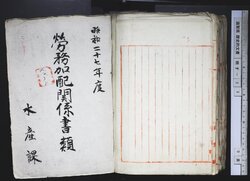 昭和二十七年度
労務加配関係書類
水産課